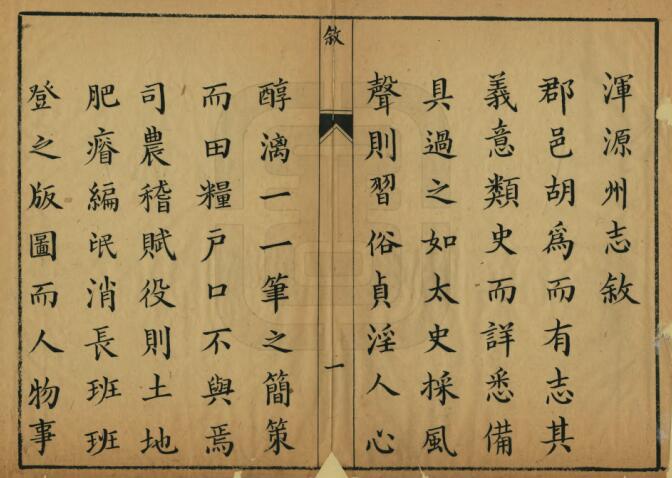 渾源州志敘
郡邑胡爲而有志其
義意類史而詳悉備
具過之如太史採風
聲則習俗貞淫人心
敘
一
醇漓一一筆之簡策
而田糧戶口不與焉
司農稽賦役則土地
肥瘠編氓消長班班
登之版圖而人物事